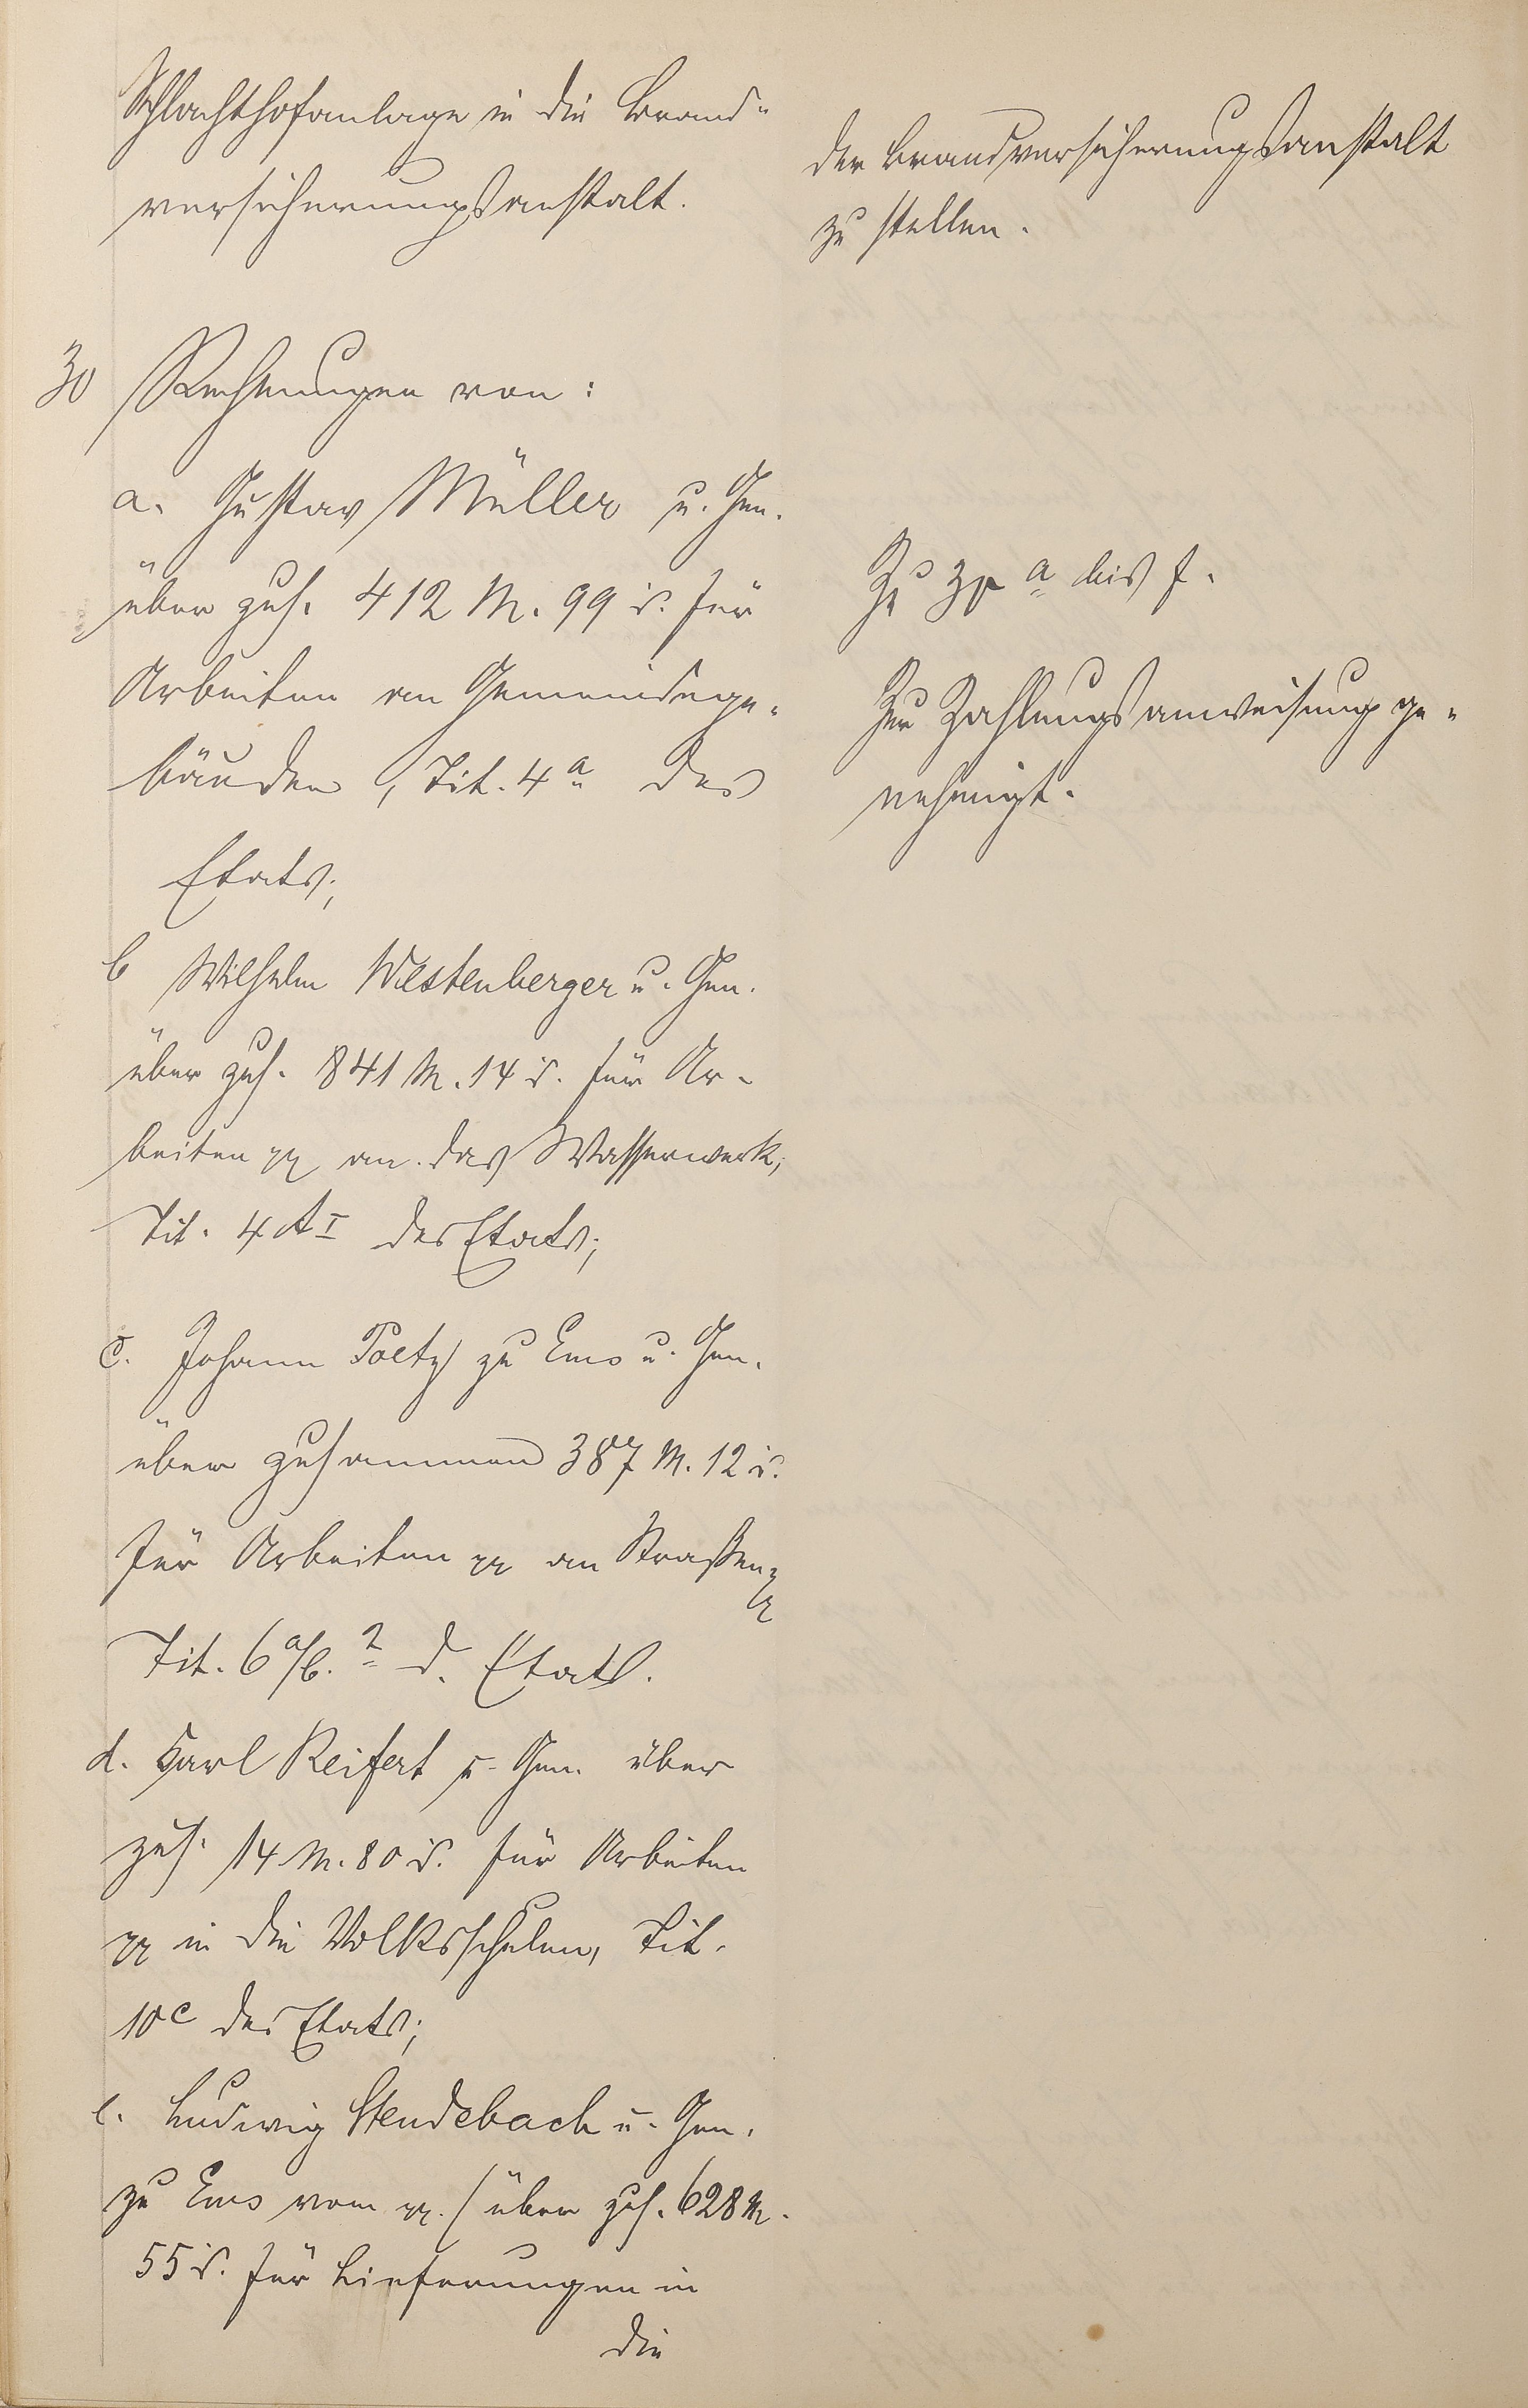 Schlachthofanlage in die Brand-
versicherungsanstalt.
30 Rechnungen von:
a. Gustav Müller u. Gen.
über zus. 412 M. 99 d. für
Arbeiten an Gemeindege-
bäuden, Tit. 4a des
Etats;
b Wilhelm Westenberger u. Gen.
über zus. 841 M. 14 d. für Ar-
beiten pp an das Wasserwerk,
Tit. 4 A I des Etats;
c. Johann Poetz zu Ems u. Gen.
über zusammen 387 M. 12 d.
für Arbeiten pp an Straßen pp
Tit. 6 a/b. 2 d. Etats.
d. Karl Reifert u. Gen. über
zus. 14 M. 80 d. für Arbeiten
pp in die Volksschulen, Tit.
10c des Etats;
e. Ludwig Stendebach u. Gen.
zu Ems vom pp. über zus. 628 M.
55 d. für Lieferungen in
die
der Brandversicherungsanstalt
zu stellen.
Zu 30 a bis f.
Zur Zahlungsanweisung ge-
nehmigt.